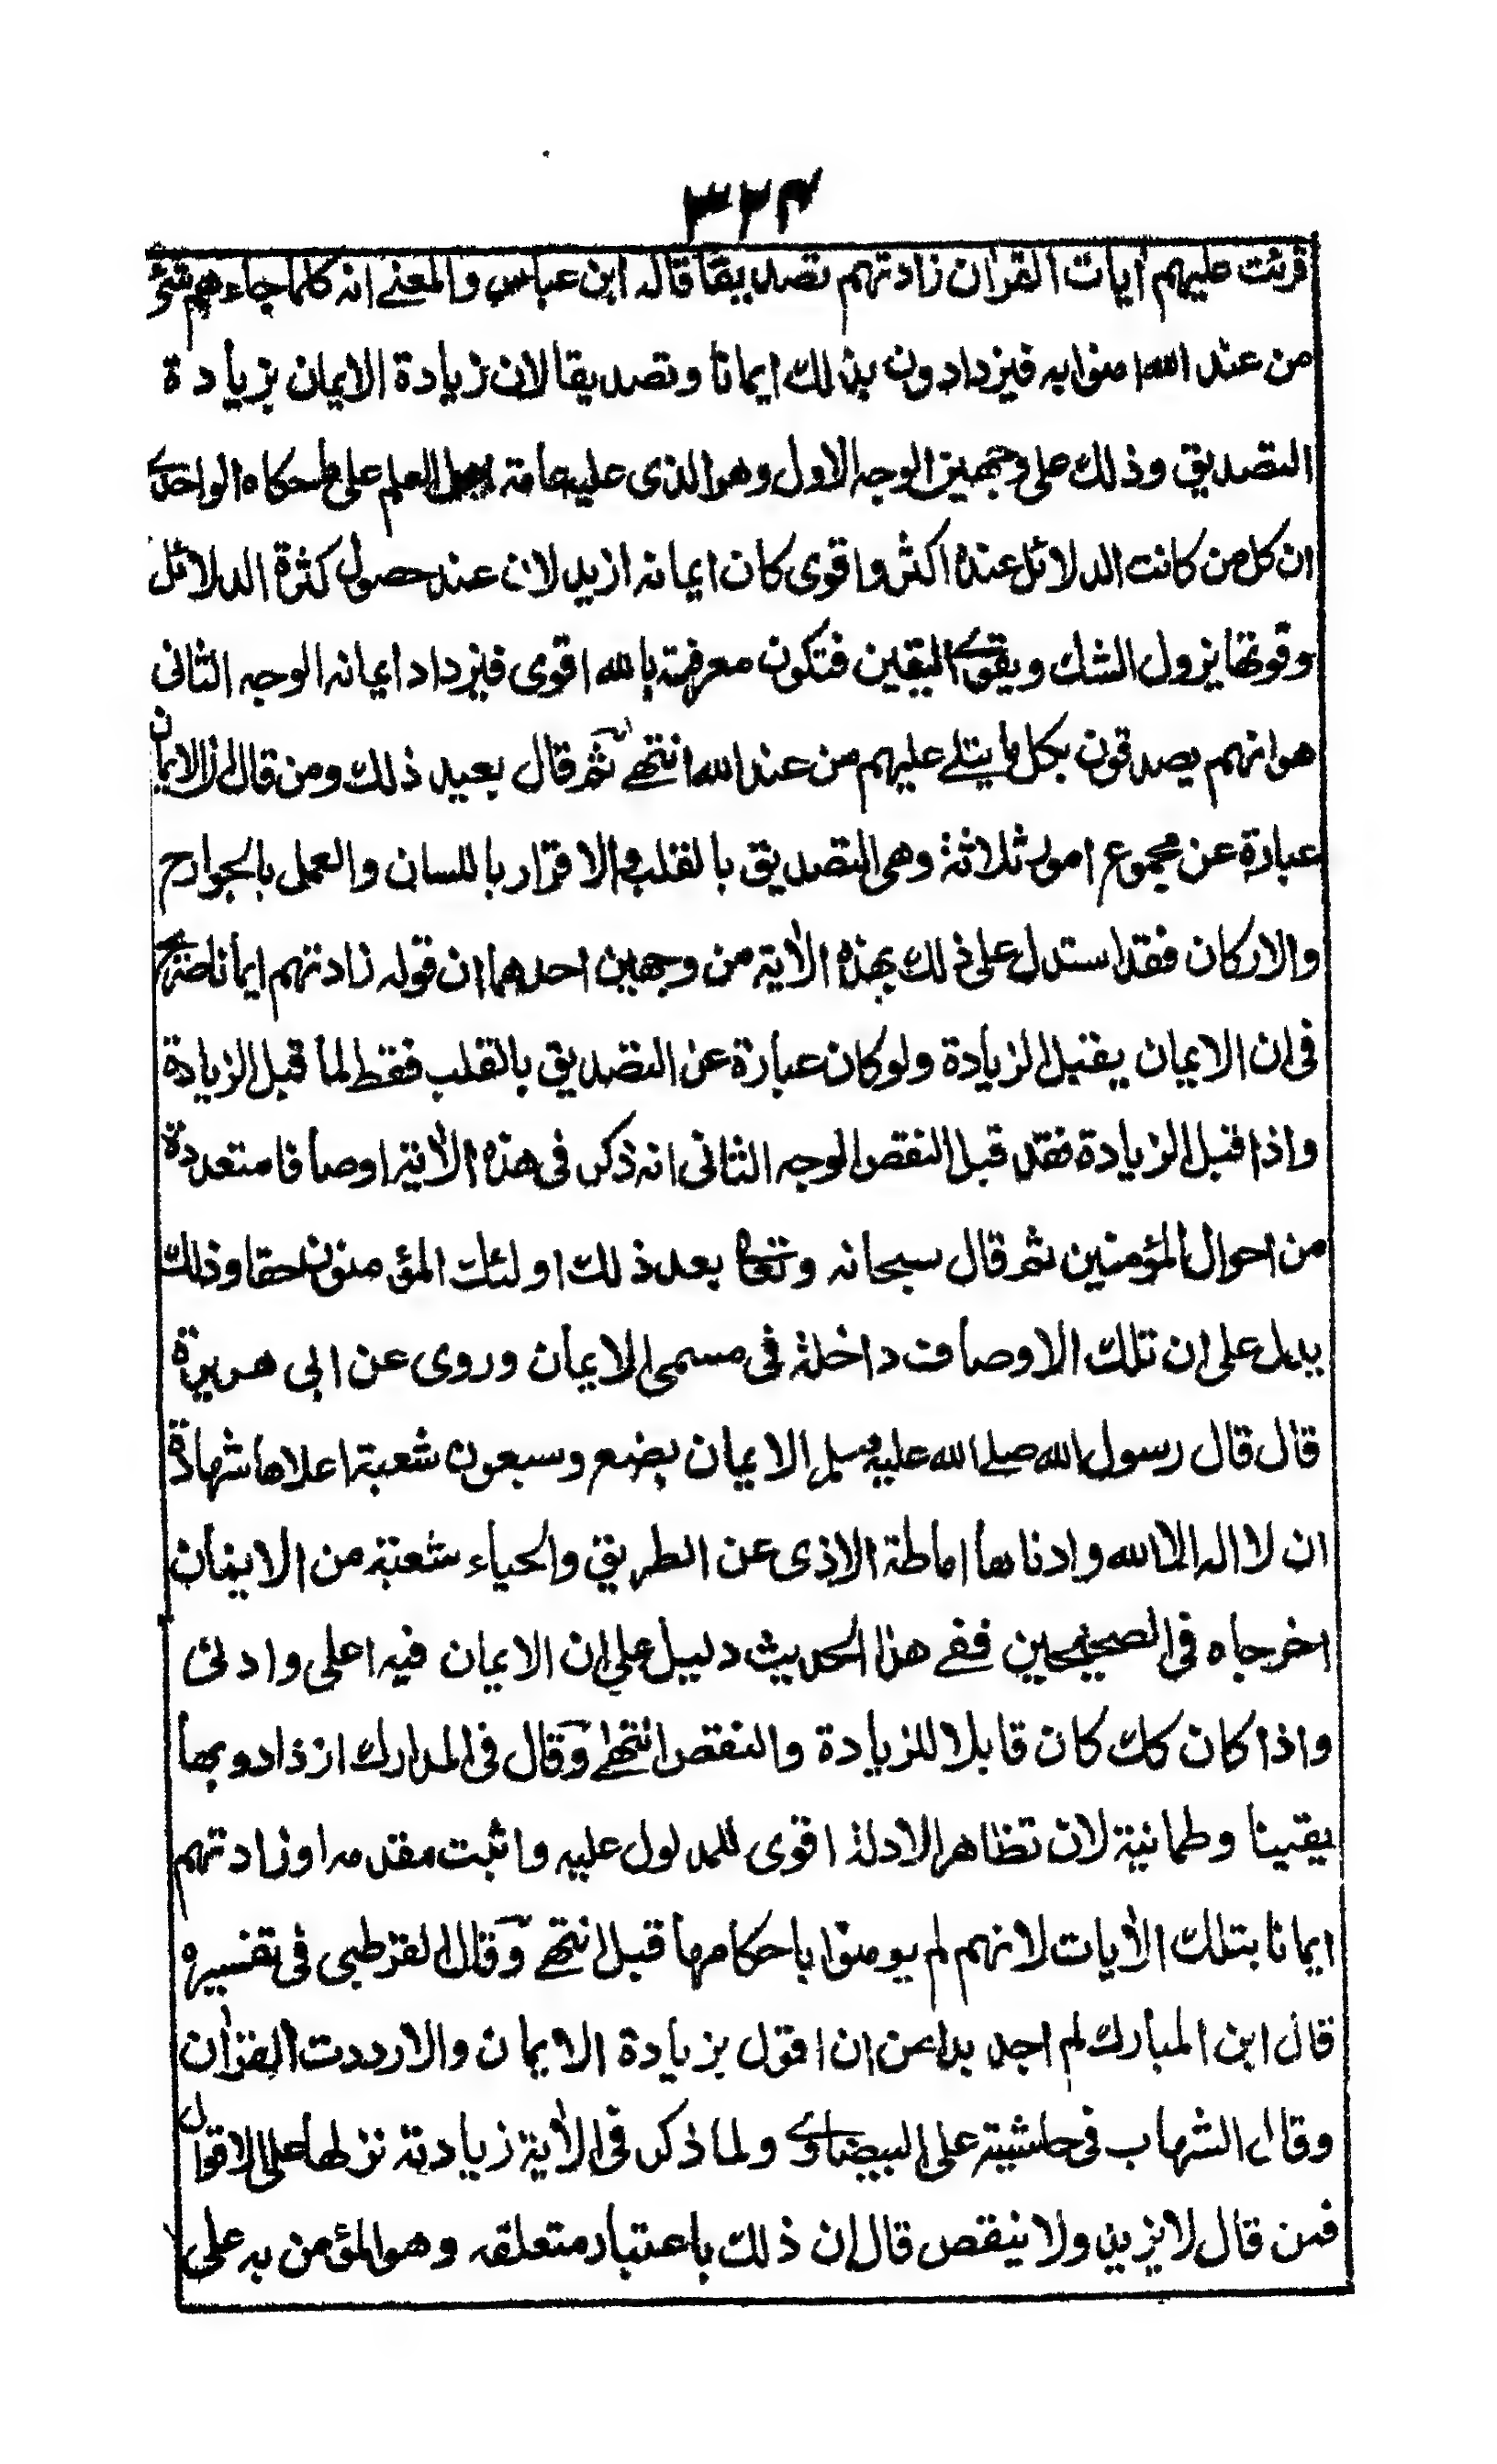 ٣٢٤
قرئت عليهم اٰيات القراٰن زادتهم تصديقا قاله ابن عباس والمعنے انه كلما جاءهم شئ
من عند الله اٰمنوا به فيزدادون بذلك ايمانا وتصديقا لان زيادة الايمان بزيادة
التصديق وذلك على وجهين الوجه الاول وهو الذى عليه عامة اهل العلم على ما حكاه الواحدے
ان كل من كانت الدلائل عنده اكثر واقوى كان ايمانه ازيد لان عند حصول كثرة الدلائل
وقوتها يزول الشك ويقوے اليقين فتكون معرفته بالله اقوى فيزداد ايمانه الوجه الثانى
هو انهم يصدقون بكل ما يتلے عليهم من عند الله انتهے ثم قال بعيد ذلك ومن قال ان الايمان
عبارة عن مجموع امور ثلاثة وهى التصديق بالقلب والاقرار باللسان والعمل بالجوارح
والاركان فقد استدل على ذلك بهذه الاٰية من وجهين احدهما ان قوله زادتهم ايمانا صريح
فى ان الايمان يقبل الزيادة ولو كان عبارة عن التصديق بالقلب فقط لما قبل الزيادة
واذا قبل الزيادة فقد قبل النقص الوجه الثانى انه ذكر فى هذه الاٰية اوصافا متعددة
من احوال المؤمنين ثم قال سبحانه وتعالى بعد ذلك اولئك المؤمنون حقا وذلك
يدل على ان تلك الاوصاف داخلة فى مسمى الايمان وروى عن ابى هريرة
قال قال رسول الله صلے الله عليه وسلم الايمان بضع وسبعون شعبة اعلاها شهادة
ان لا اله الا الله وادناها اماطة الاذى عن الطريق والحياء شعبة من الايمان
اخرجاه فى الصحيحين ففے هذا الحديث دليل على ان الايمان فيه اعلى وادنى
واذا كان كك كان قابلا للزيادة والنقص انتهے وقال فى المدارك ازدادوا بها
يقينا وطمانية لان تظاهر الادلة اقوى للمدلول عليه واثبت مقدمه او زادتهم
ايمانا بتلك الاٰيات لانهم لم يومنوا باحكامها قبل انتهے وقال القرطبى فى تفسيره
قال ابن المبارك لم اجد بدا من ان اقول بزيادة الايمان والا رددت القراٰن
وقال الشهاب فى حاشيته على البيضاوے ولما ذكر فى الاٰية زيادته نزلها على الاقوال
فمن قال لا يزيد ولا ينقص قال ان ذلك باعتبار متعلقه وهو المؤمن به على